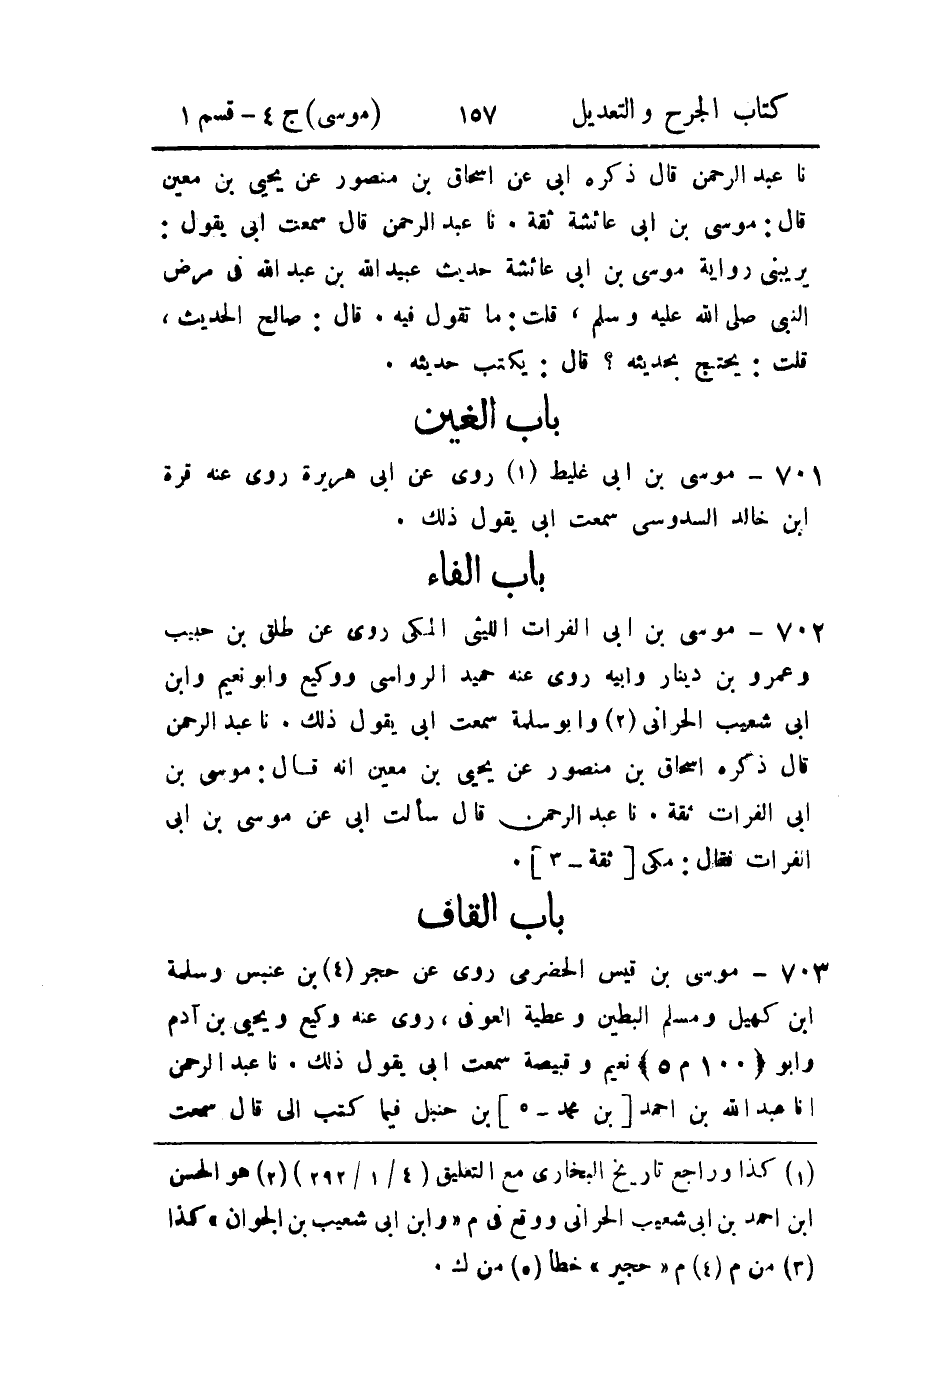 كتاب الجرح والتعديل ١٥٧ (موسى) ج ٤ - قسم ١
نا عبد الرحمن قال ذكره ابى عن اسحاق بن منصور عن يحيى بن معين
قال: موسى بن ابى عائشة ثقة. نا عبد الرحمن قال سمعت ابى يقول:
يريبنى رواية موسى بن ابى عائشة حديث عبيد الله بن عبد الله فى مرض
النبى صلى الله عليه وسلم، قلت: ما تقول فيه. قال: صالح الحديث،
قلت: يحتج بحديثه؟ قال: يكتب حديثه.
باب الغين
٧٠١ - موسى بن ابى غليظ (١) روى عن ابى هريرة روى عنه قرة
ابن خالد السدوسى سمعت ابى يقول ذلك.
باب الفاء
٧٠٢ - موسى بن ابى الفرات الليثى المكى روى عن طلق بن حبيب
وعمرو بن دينار وابيه روى عنه حميد الرواسى ووكيع وابو نعيم وابن
ابى شعيب الحرانى (٢) وابو سلمة سمعت ابى يقول ذلك. نا عبد الرحمن
قال ذكره اسحاق بن منصور عن يحيى بن معين انه قال: موسى بن
ابى الفرات ثقة. نا عبد الرحمن قال سألت ابى عن موسى بن ابى
الفرات فقال: مكى [ ثقة - ٣ ].
باب القاف
٧٠٣ - موسى بن قيس الحضرمى روى عن حجر (٤) بن عنبس وسلمة
ابن كهيل ومسلم البطين وعطية العوفى، روى عنه وكيع ويحيى بن آدم
وابو ﴿ ١٠٠ م ٥ ﴾ نعيم وقبيصة سمعت ابى يقول ذلك. نا عبد الرحمن
انا عبد الله بن احمد [ بن محمد - ٥ ] بن حنبل فيما كتب الى قال سمعت
(١) كذا وراجع تاريخ البخارى مع التعليق ( ٤ / ١ / ٢٩٢ ) (٢) هو الحسن
ابن احمد بن ابى شعيب الحرانى ووقع فى م « وابن ابى شعيب بن الجوان » كذا
(٣) من م (٤) م « حجير » خطأ (٥) من ك.